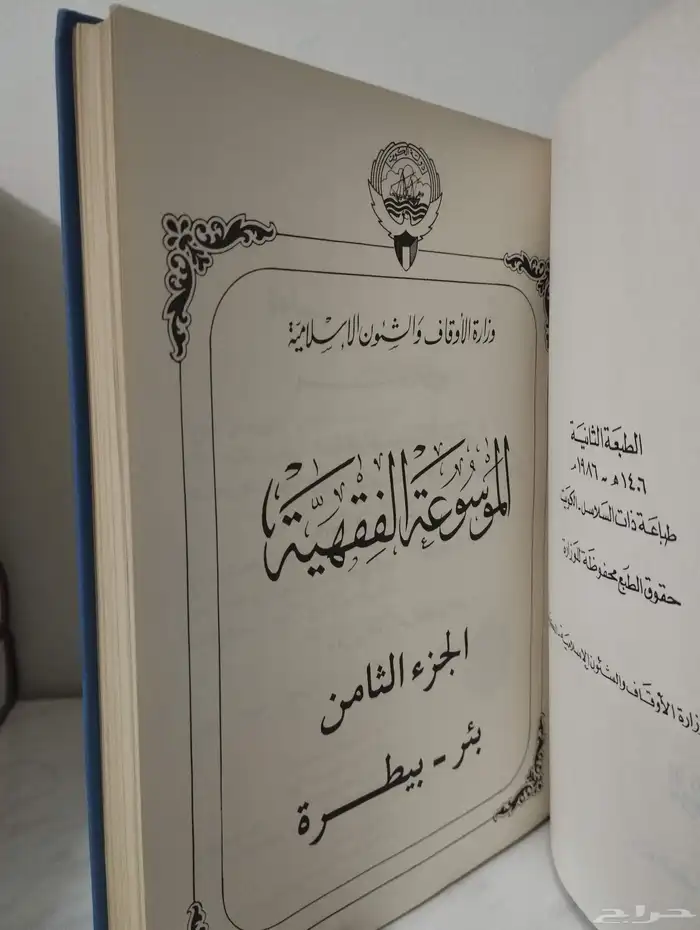 دولة الكويت
وزارة الأوقاف والشئون الإسلامية
الموسوعة الفقهية
الجزء الثامن
بئر - بيطرة
الطبعة الثانية
١٤٠٦ هـ - ١٩٨٦ م
طباعة ذات السلاسل - الكويت
حقوق الطبع محفوظة للوزارة
وزارة الأوقاف والشئون الإسلامية
حراج